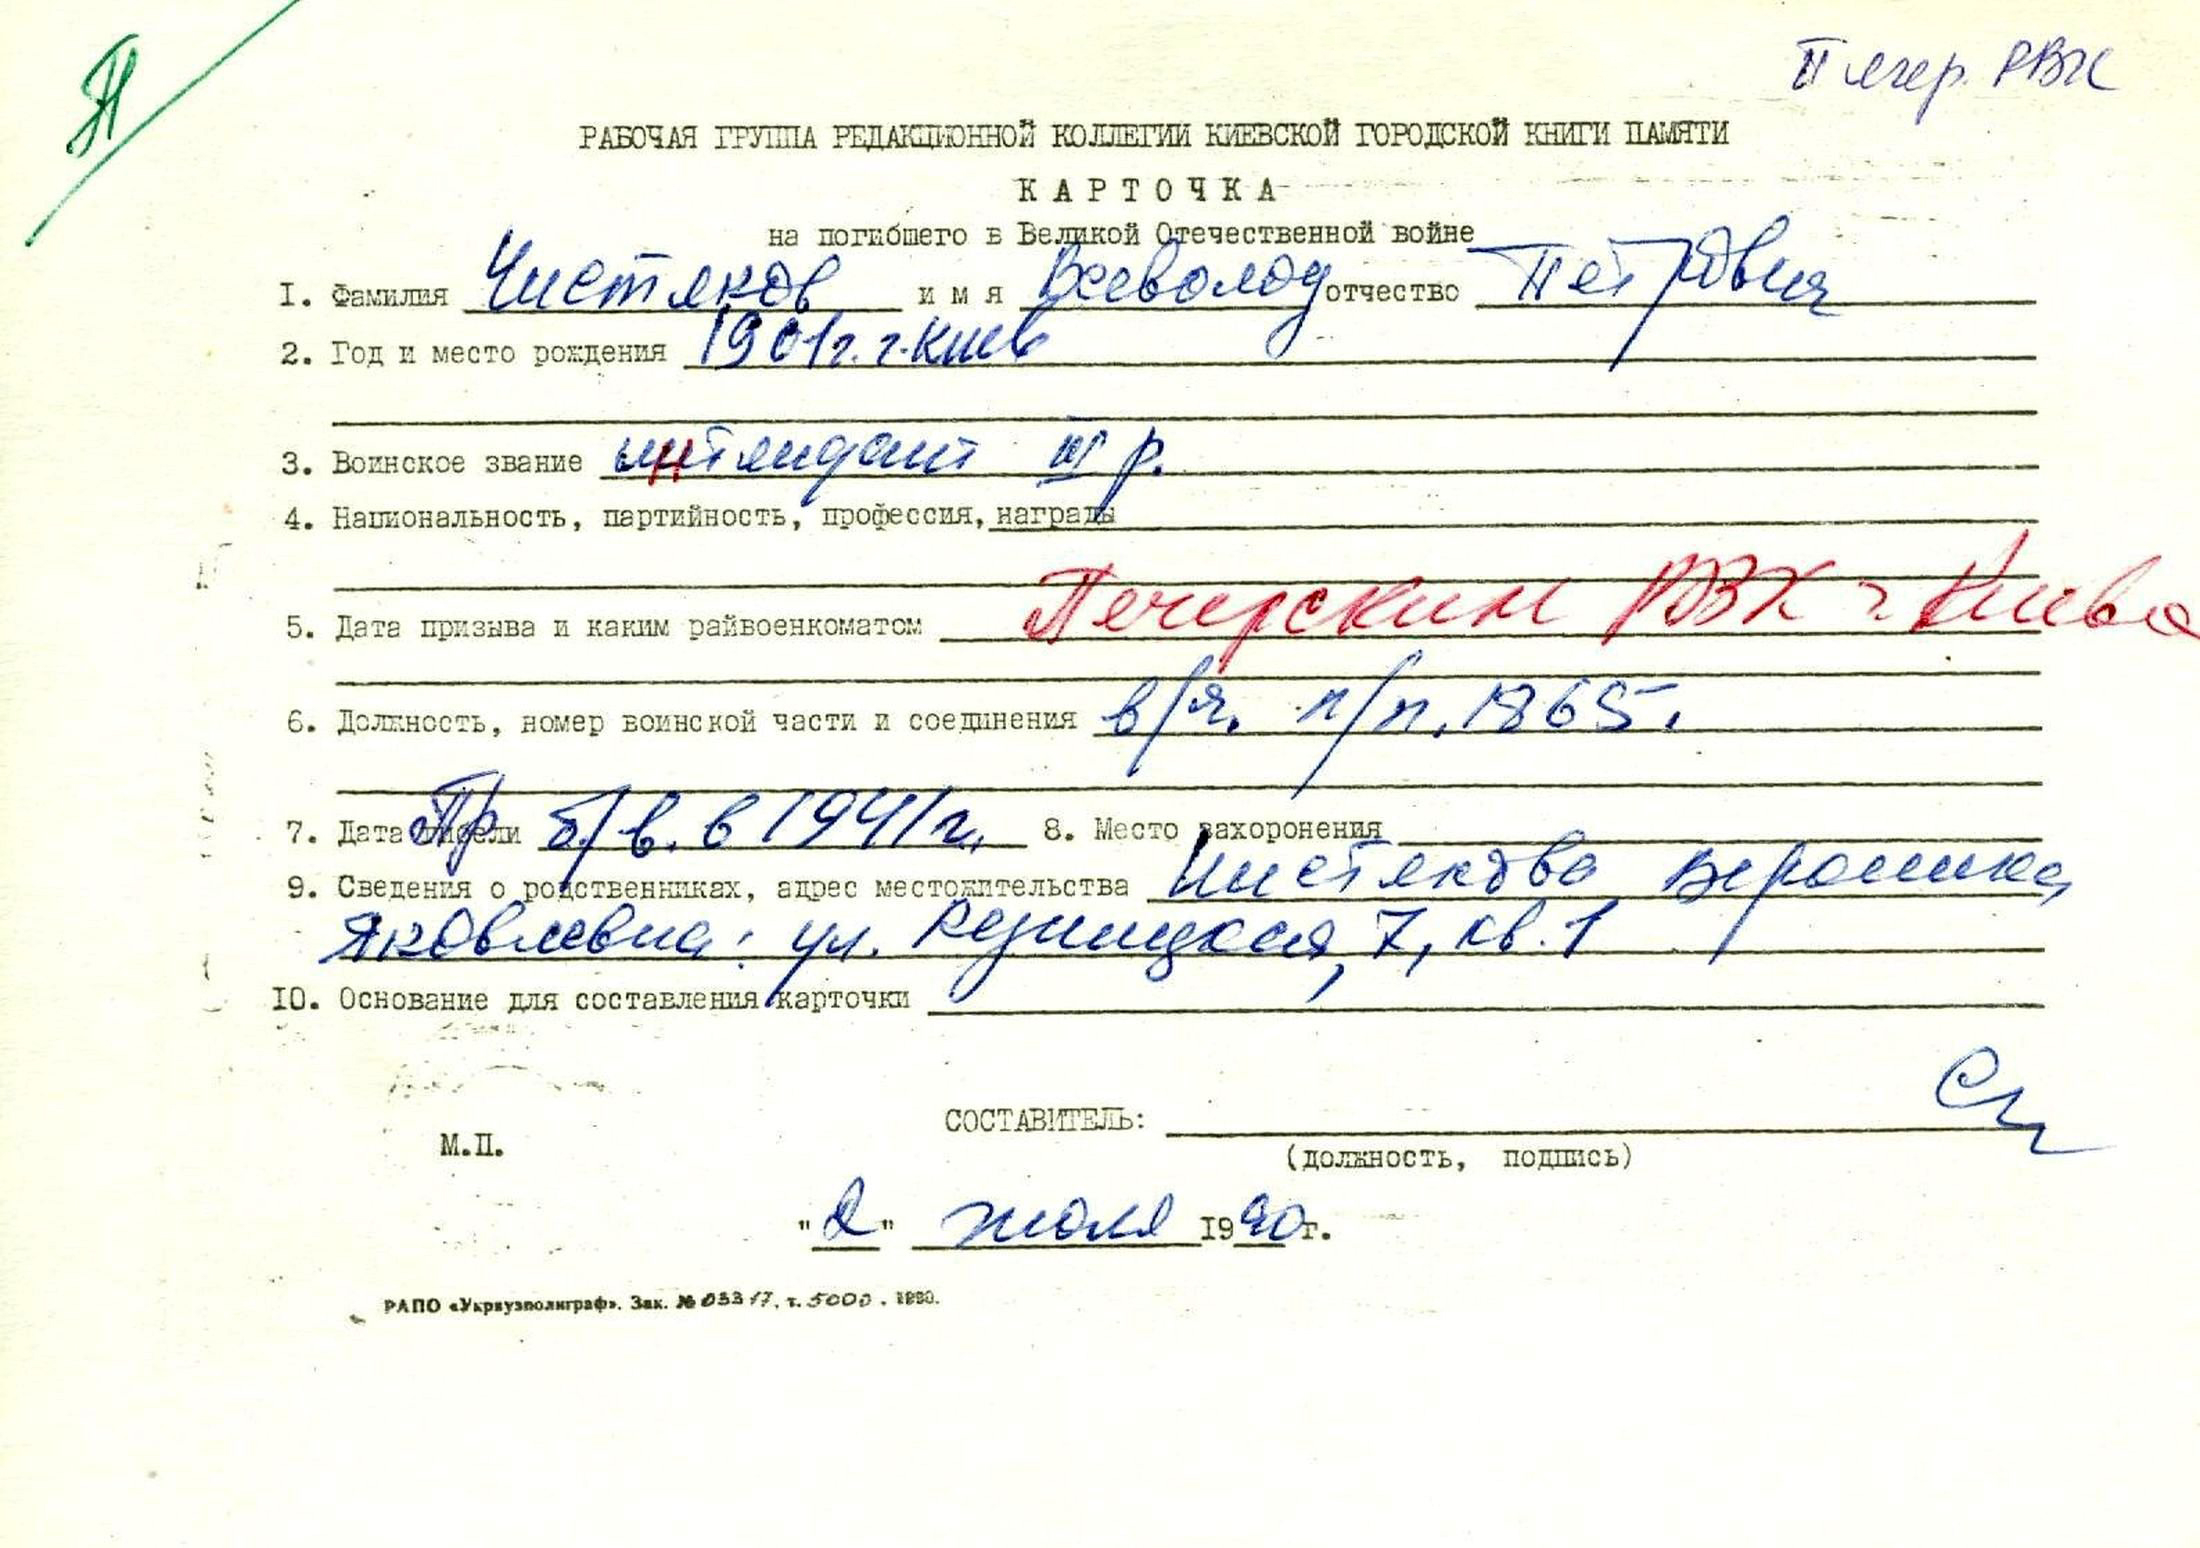 Печер. РВК
РАБОЧАЯ ГРУППА РЕДАКЦИОННОЙ КОЛЛЕГИИ КИЕВСКОЙ ГОРОДСКОЙ КНИГИ ПАМЯТИ
КАРТОЧКА
на погибшего в Великой Отечественной войне
I. Фамилия Чистяков имя Всеволод отчество Петрович
2. Год и место рождения 1901г. г. Киев
3. Воинское звание интендант III р.
4. Национальность, партийность, профессия, награды
5. Дата призыва и каким райвоенкоматом Печерским РВК г. Киева
6. Должность, номер воинской части и соединения в/ч. п/п. 1865.
7. Дата гибели Пр б/в. в 1941г. 8. Место захоронения
9. Сведения о родственниках, адрес местожительства Чистякова Вероника
Яковлевна: ул. Резницкая, 7, кв. 1
IO. Основание для составления карточки
СОСТАВИТЕЛЬ:
М.П.
(должность, подпись)
"2" июля 1990г.
РАПО «Укрвузполиграф». Зак. № 03317, т. 5000. 1990.